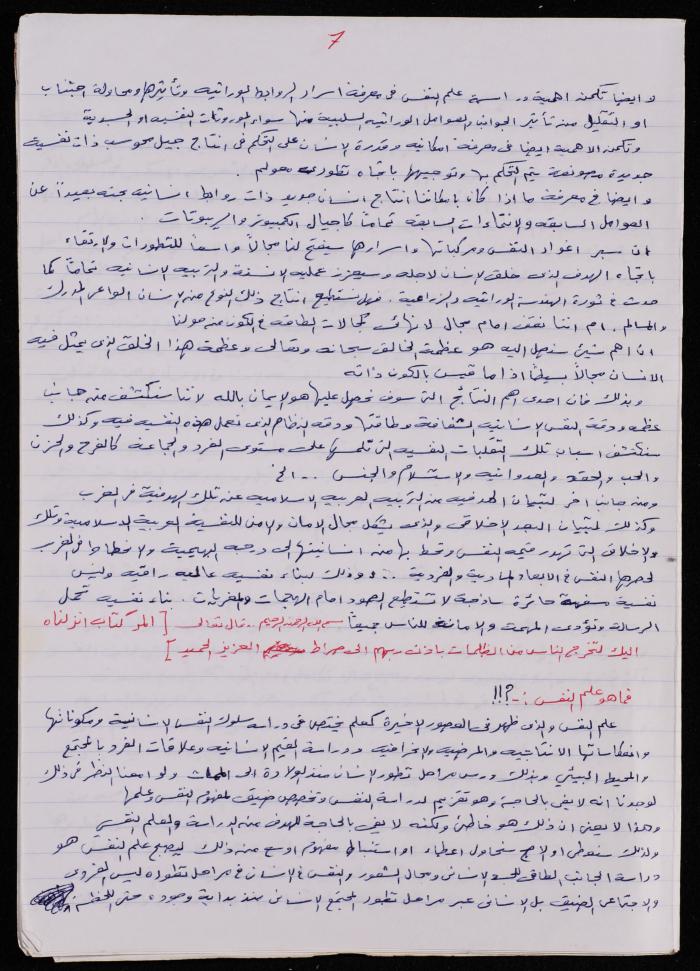 7
و ايضاً تكمن اهمية دراسة علم النفس في معرفة اسرار الروابط الوراثيه وتأثيرها ومحاولة اجتناب
او التقليل من تأثير الجوانب والعوامل الوراثيه السلبيه منها سواء الموروثات النفسيه او الجسدية
وتكمن الاهميه ايضاً في معرفة امكانيه وقدرة الانسان على التحكم في انتاج جيل محوسب ذات نفسية
جديدة مصونة يتم التحكم بها وتوجيهها باتجاه تطوري معولم .
و ايضاً في معرفة ما اذا كان بامكاننا انتاج انسان جديد ذات روابط انسانيه بحته بعيداً عن
العوامل السابقه والانتماءات السابقه تماماً كأجيال الكمبيوتر والريبوتات .
ان سبر اغوار النفس ومركباتها واسرارها سيفتح لنا مجالاً واسعاً للتطورات والارتقاء
باتجاه الهدف الذي خلق الانسان لاجله وسيعزز عمليه الانسنة والتربيه الانسانيه تماماً كما
حدث في ثورة الهندسه الوراثيه والزراعية . فهل نستطيع انتاج ذلك النوع من الانسان الواعي المدرك
والمسالم . ام اننا نقف امام مجال لا نهائي كمجالات الطاقه في الكون من حولنا
ان اهم شيئ سنصل اليه هو عظمة الخالق سبحانه وتعالى وعظمة هذا الخلق الذي يمثل فيه
الانسان مجالاً بسيطاً اذا ما قيس بالكون ذاته
وبذلك فان احدى اهم النتائج التي سوف نحصل عليها هو الايمان بالله لاننا سنكتشف من جانب
عظمه ودقة النفس الانسانيه الشفافة وطاقتها ودقه النظام الذي تعمل هذه النفسيه فيه وكذلك
سنكتشف اسباب تلك التقلبات النفسيه التي نلمسها على مستوى الفرد والجماعة كالفرح والحزن
والحب والحقد والعدوانيه والاستسلام والجنس ... الخ
ومن جانب اخر لتبيان الهدفيه من التربيه العربيه الاسلاميه عن تلك الهدفية في الغرب
وكذلك لتبيان البعد الاخلاقي والذي يشكل مجال الامان والامن للنفسية العربية الاسلامية وتلك
والاخلاق التي تدهور قيمه النفس وتحط بها من انسانيتها الى درجه البهيمية والانحطاط في الغرب
لحصرها النفس في الابعاد الماديه والفردية ... وذلك لبناء نفسيه عالمه راقيه وليس
نفسية حائرة ساذجة لا تستطيع الصمود امام الهجمات والمغريات . بناء نفسيه تحمل
الرسالة وتؤدي المهمة والامانة للناس جميعاً بسم الله الرحمن الرحيم .. قال تعالى [ الر كتاب انزلناه
اليك لتخرج الناس من الظلمات باذن ربهم الى صراط العزيز الحميد ]
فما هو علم النفس :- ؟!!
علم النفس والذي ظهر في العصور الاخيرة كعلم يختص في دراسه سلوك النفس الانسانية ومكوناتها
وانعكاساتها والمرضيه والانحرافيه ودراسة القيم الانسانيه وعلاقات الفرد بالمجتمع
والمحيط البيئي وبذلك ودرس مراحل تطور الانسان منذ الولادة الى الممات ولو امعنا النظر في ذلك
لوجدنا انه لا يفي بالحاجة وهو تقزيم لدراسة النفس وتخصيص ضيق لمفهوم النفس وعلمها
وهذا لا يعني ان ذلك هو خاطئ ولكنه لا يفي بالحاجة للهدف من الدراسة والعلم النفسي
ولذلك سنعطي او الاصح سنحاول اعطاء او استنباط مفهوم اوسع من ذلك ليصبح علم النفس هو
دراسة الجانب الطاقي للجسد الانساني ومجال الشعور والنفس في الانسان في مراحل تطوره ليس الفردي
والاجتماعي الضيق بل الانساني عبر مراحل تطور المجتمع الانساني منذ بداية وجوده حتى اللحظه